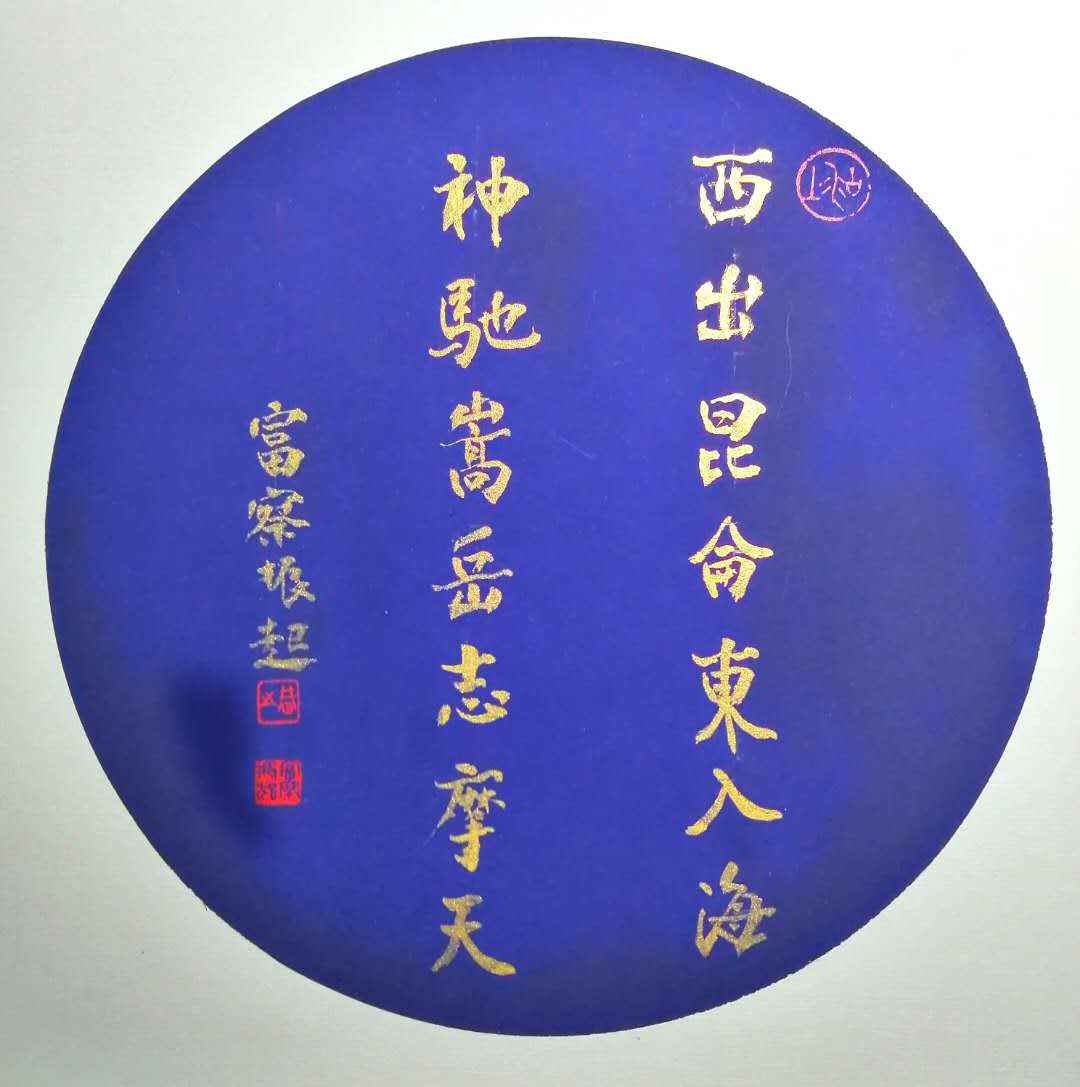 西出昆侖東入海
神馳嵩岳志摩天
富察振起